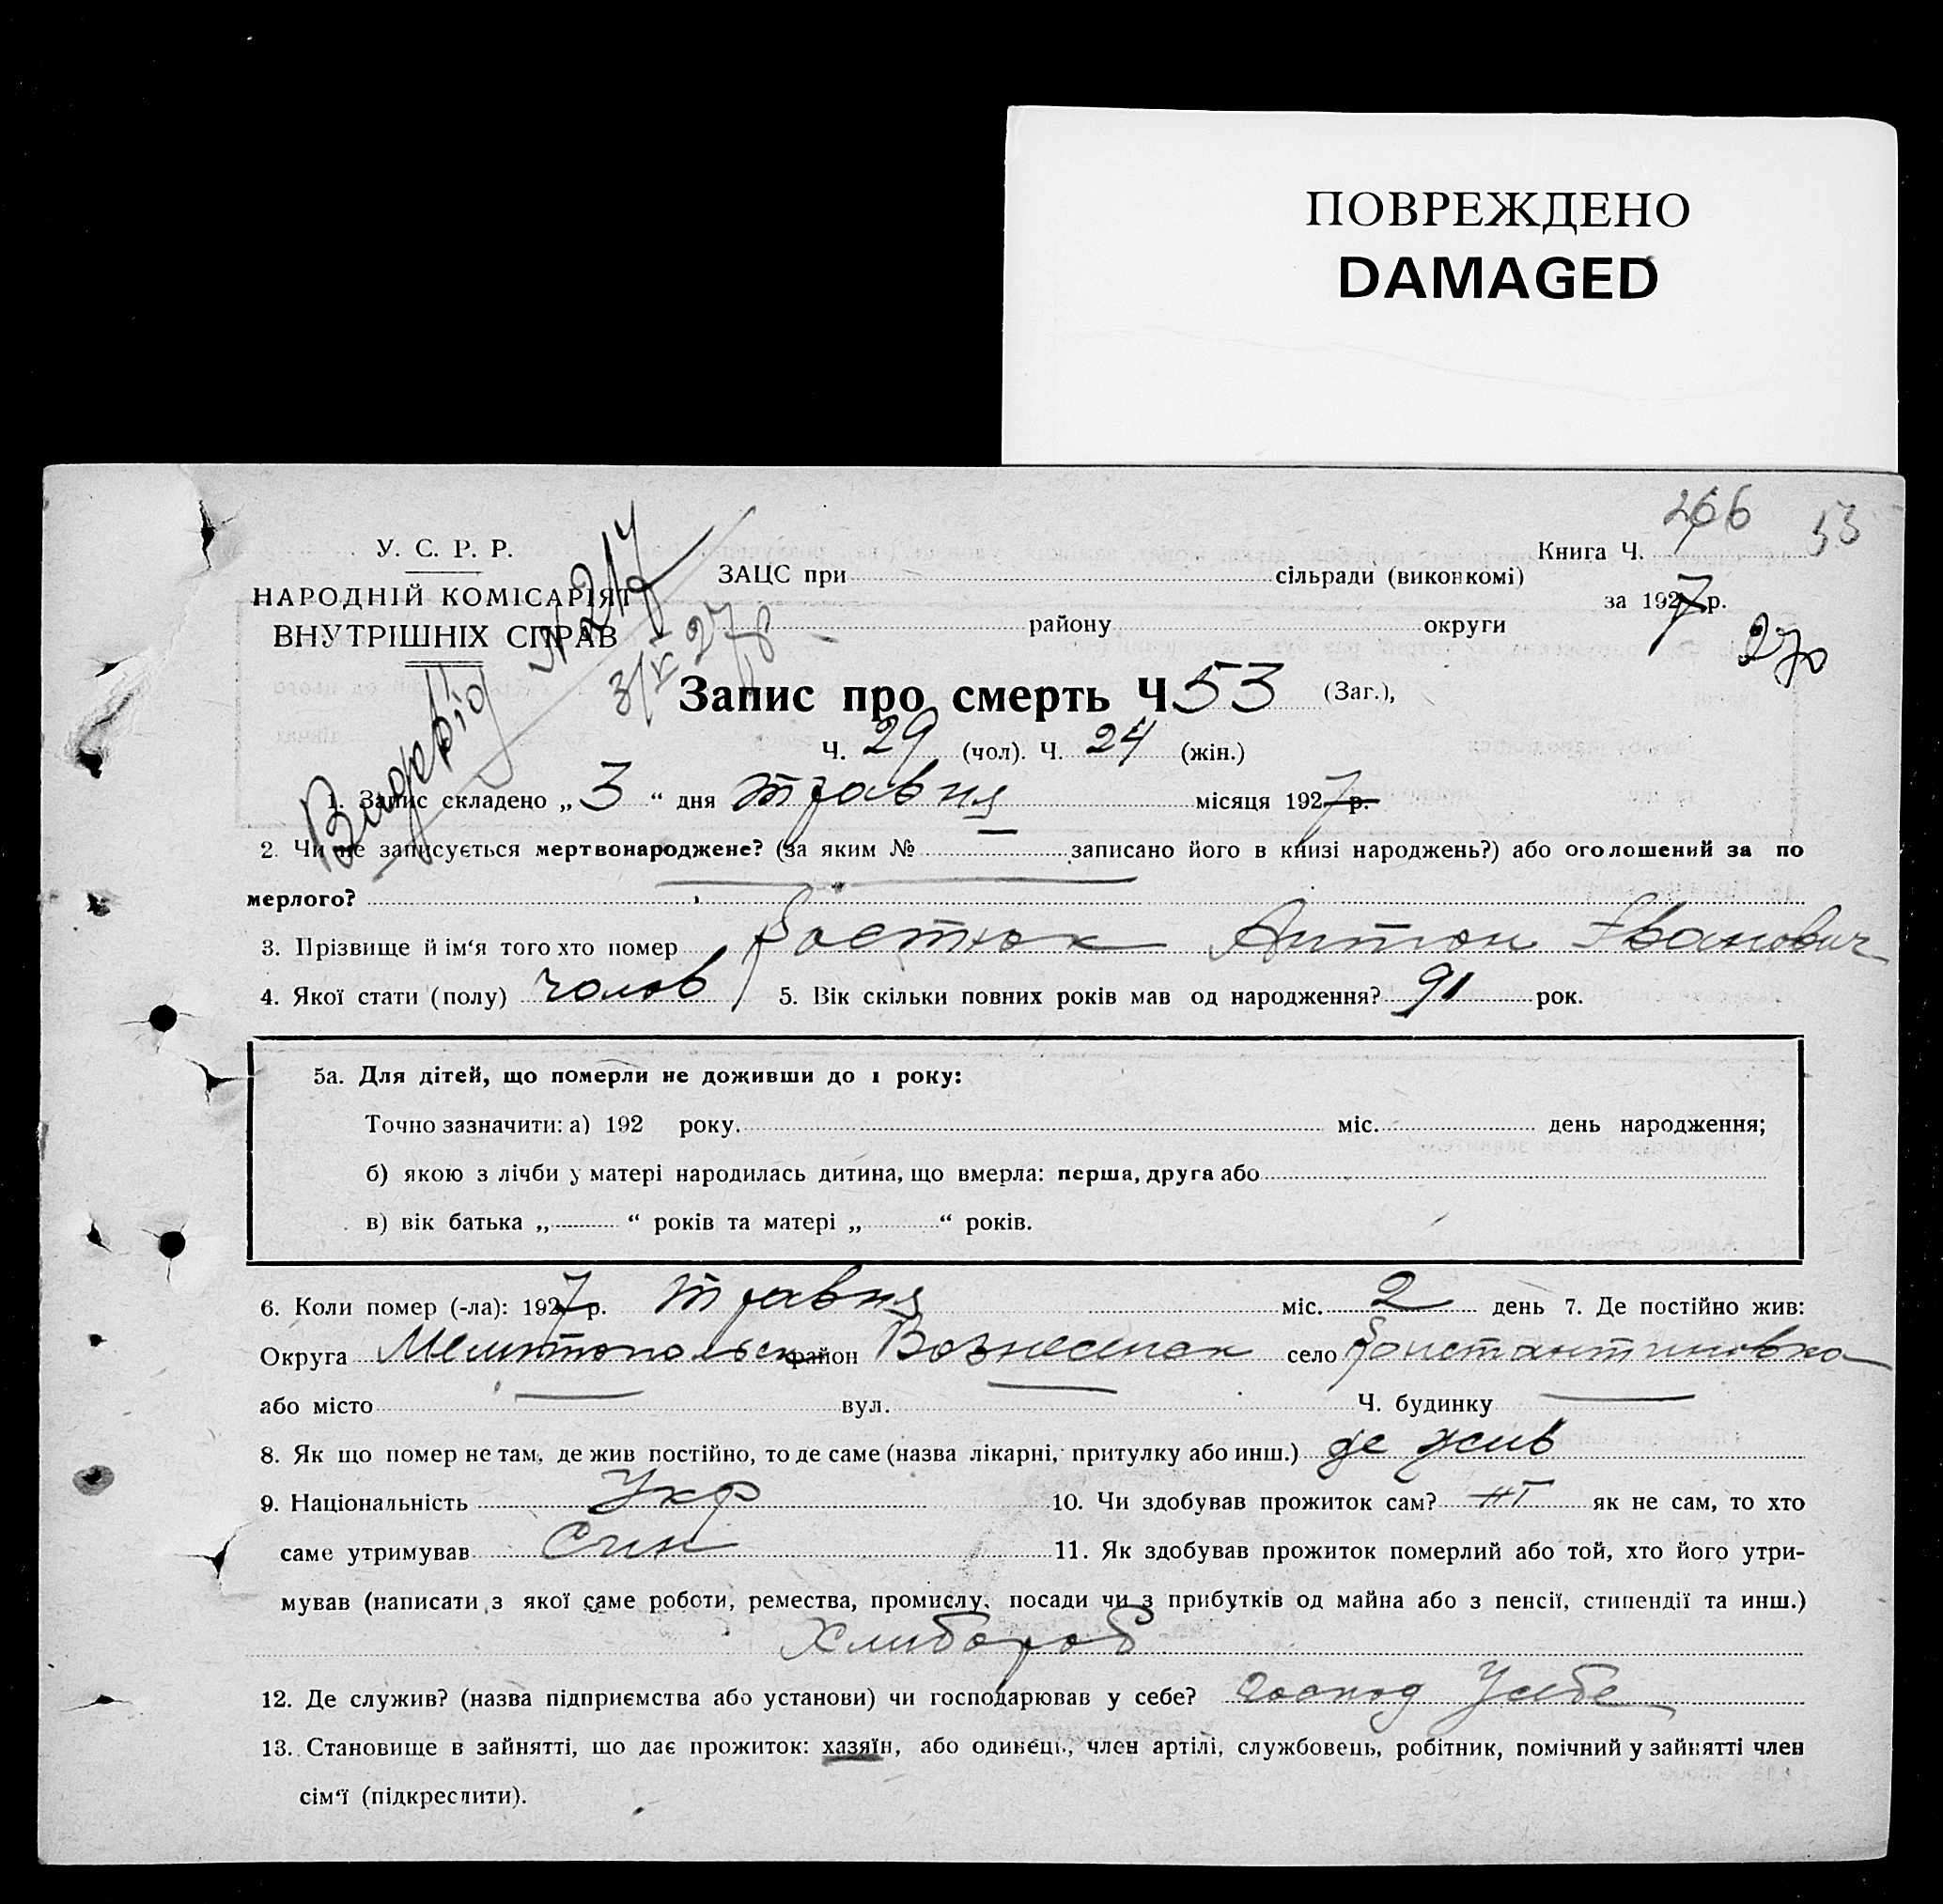 ПОВРЕЖДЕНО
DAMAGED
266 53
У. С. Р. Р.
НАРОДНІЙ КОМІСАРІЯТ
ВНУТРІШНІХ СПРАВ
№ 217
3/V 27 р
Книга Ч.
ЗАЦС при сільради (виконкомі)
за 1927 р.
району округи
270
Запис про смерть Ч 53 (Заг.),
Ч. 29 (чол). Ч. 24 (жін.)
1. Запис складено „ 3 “ дня травня місяця 1927 р.
2. Чи не записується мертвонароджене? (за яким № записано його в книзі народжень?) або оголошений за по
мерлого?
3. Прізвище й ім‘я того хто помер Костюк Антон Іванович
4. Якої стати (полу) чолов 5. Вік скільки повних років мав од народження? 91 рок.
5а. Для дітей, що померли не доживши до 1 року:
Точно зазначити: а) 192 року. міс. день народження;
б) якою з лічби у матері народилась дитина, що вмерла: перша, друга або
в) вік батька „ “ років та матері „ “ років.
6. Коли помер (-ла): 1927 р. травня міс. 2 день 7. Де постійно жив:
Округа Мелитопольск район Вознесенск село Константиновка
або місто вул. Ч. будинку
8. Як що помер не там, де жив постійно, то де саме (назва лікарні, притулку або инш.) де жив
9. Національність Укр 10. Чи здобував прожиток сам? ні як не сам, то хто
саме утримував Син 11. Як здобував прожиток померлий або той, хто його утри-
мував (написати з якої саме роботи, ремества, промислу, посади чи з прибутків од майна або з пенсії, стипендії та инш.)
Хлибороб
12. Де служив? (назва підприємства або установи) чи господарював у себе? господ У себе
13. Становище в зайнятті, що дає прожиток: хазяїн, або одинець, член артілі, службовець, робітник, помічний у зайнятті член
сім‘ї (підкреслити).